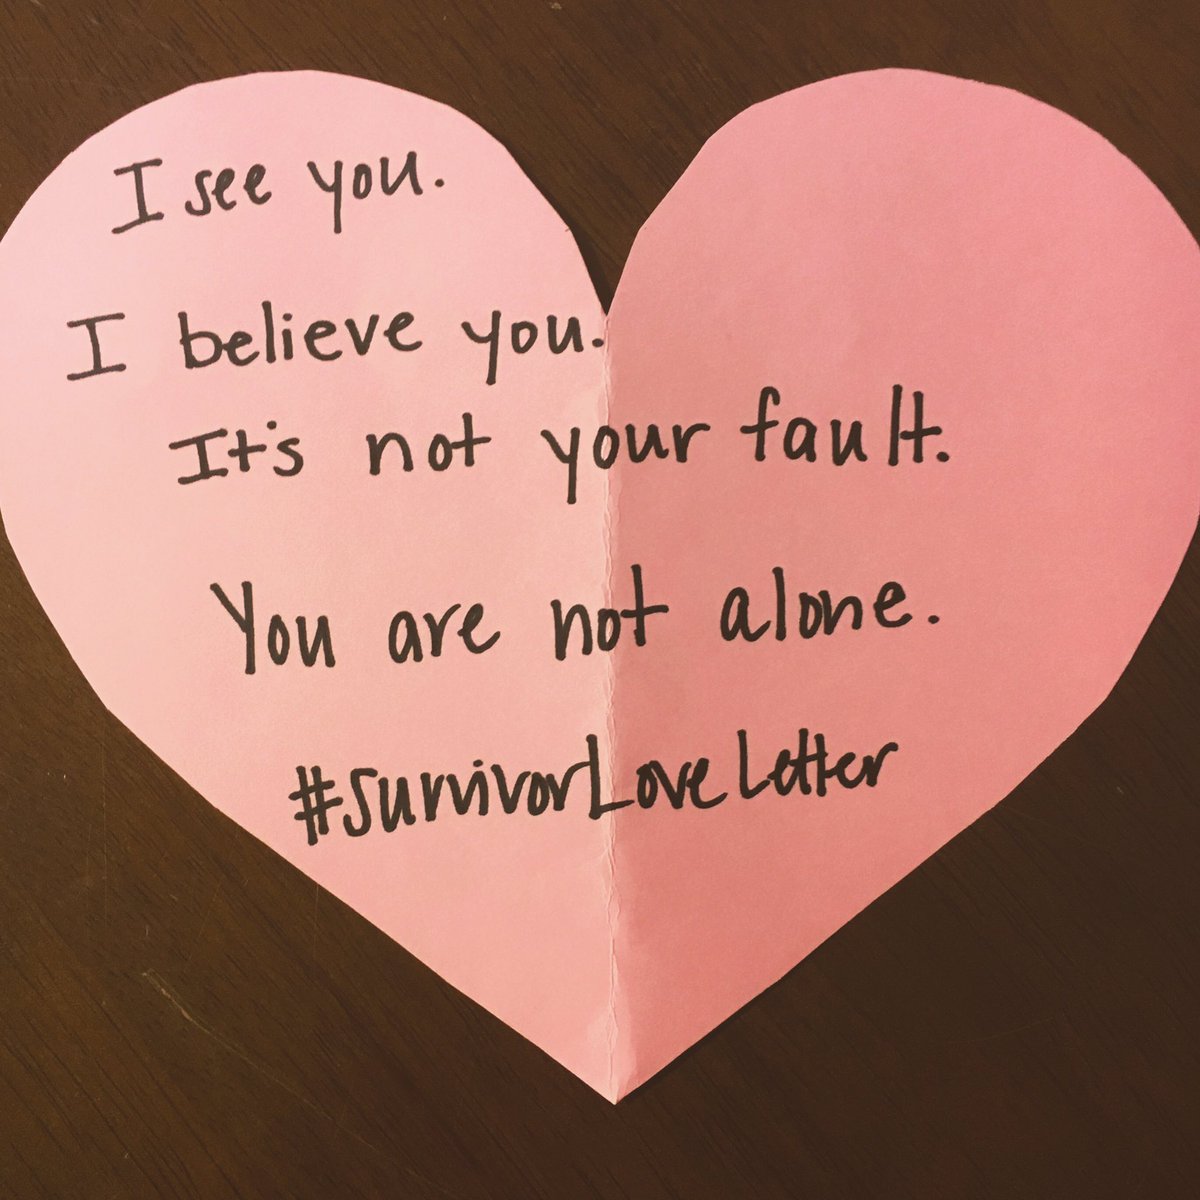 I see you.
I believe you.
It's not your fault.
You are not alone.
#SurvivorLoveLetter